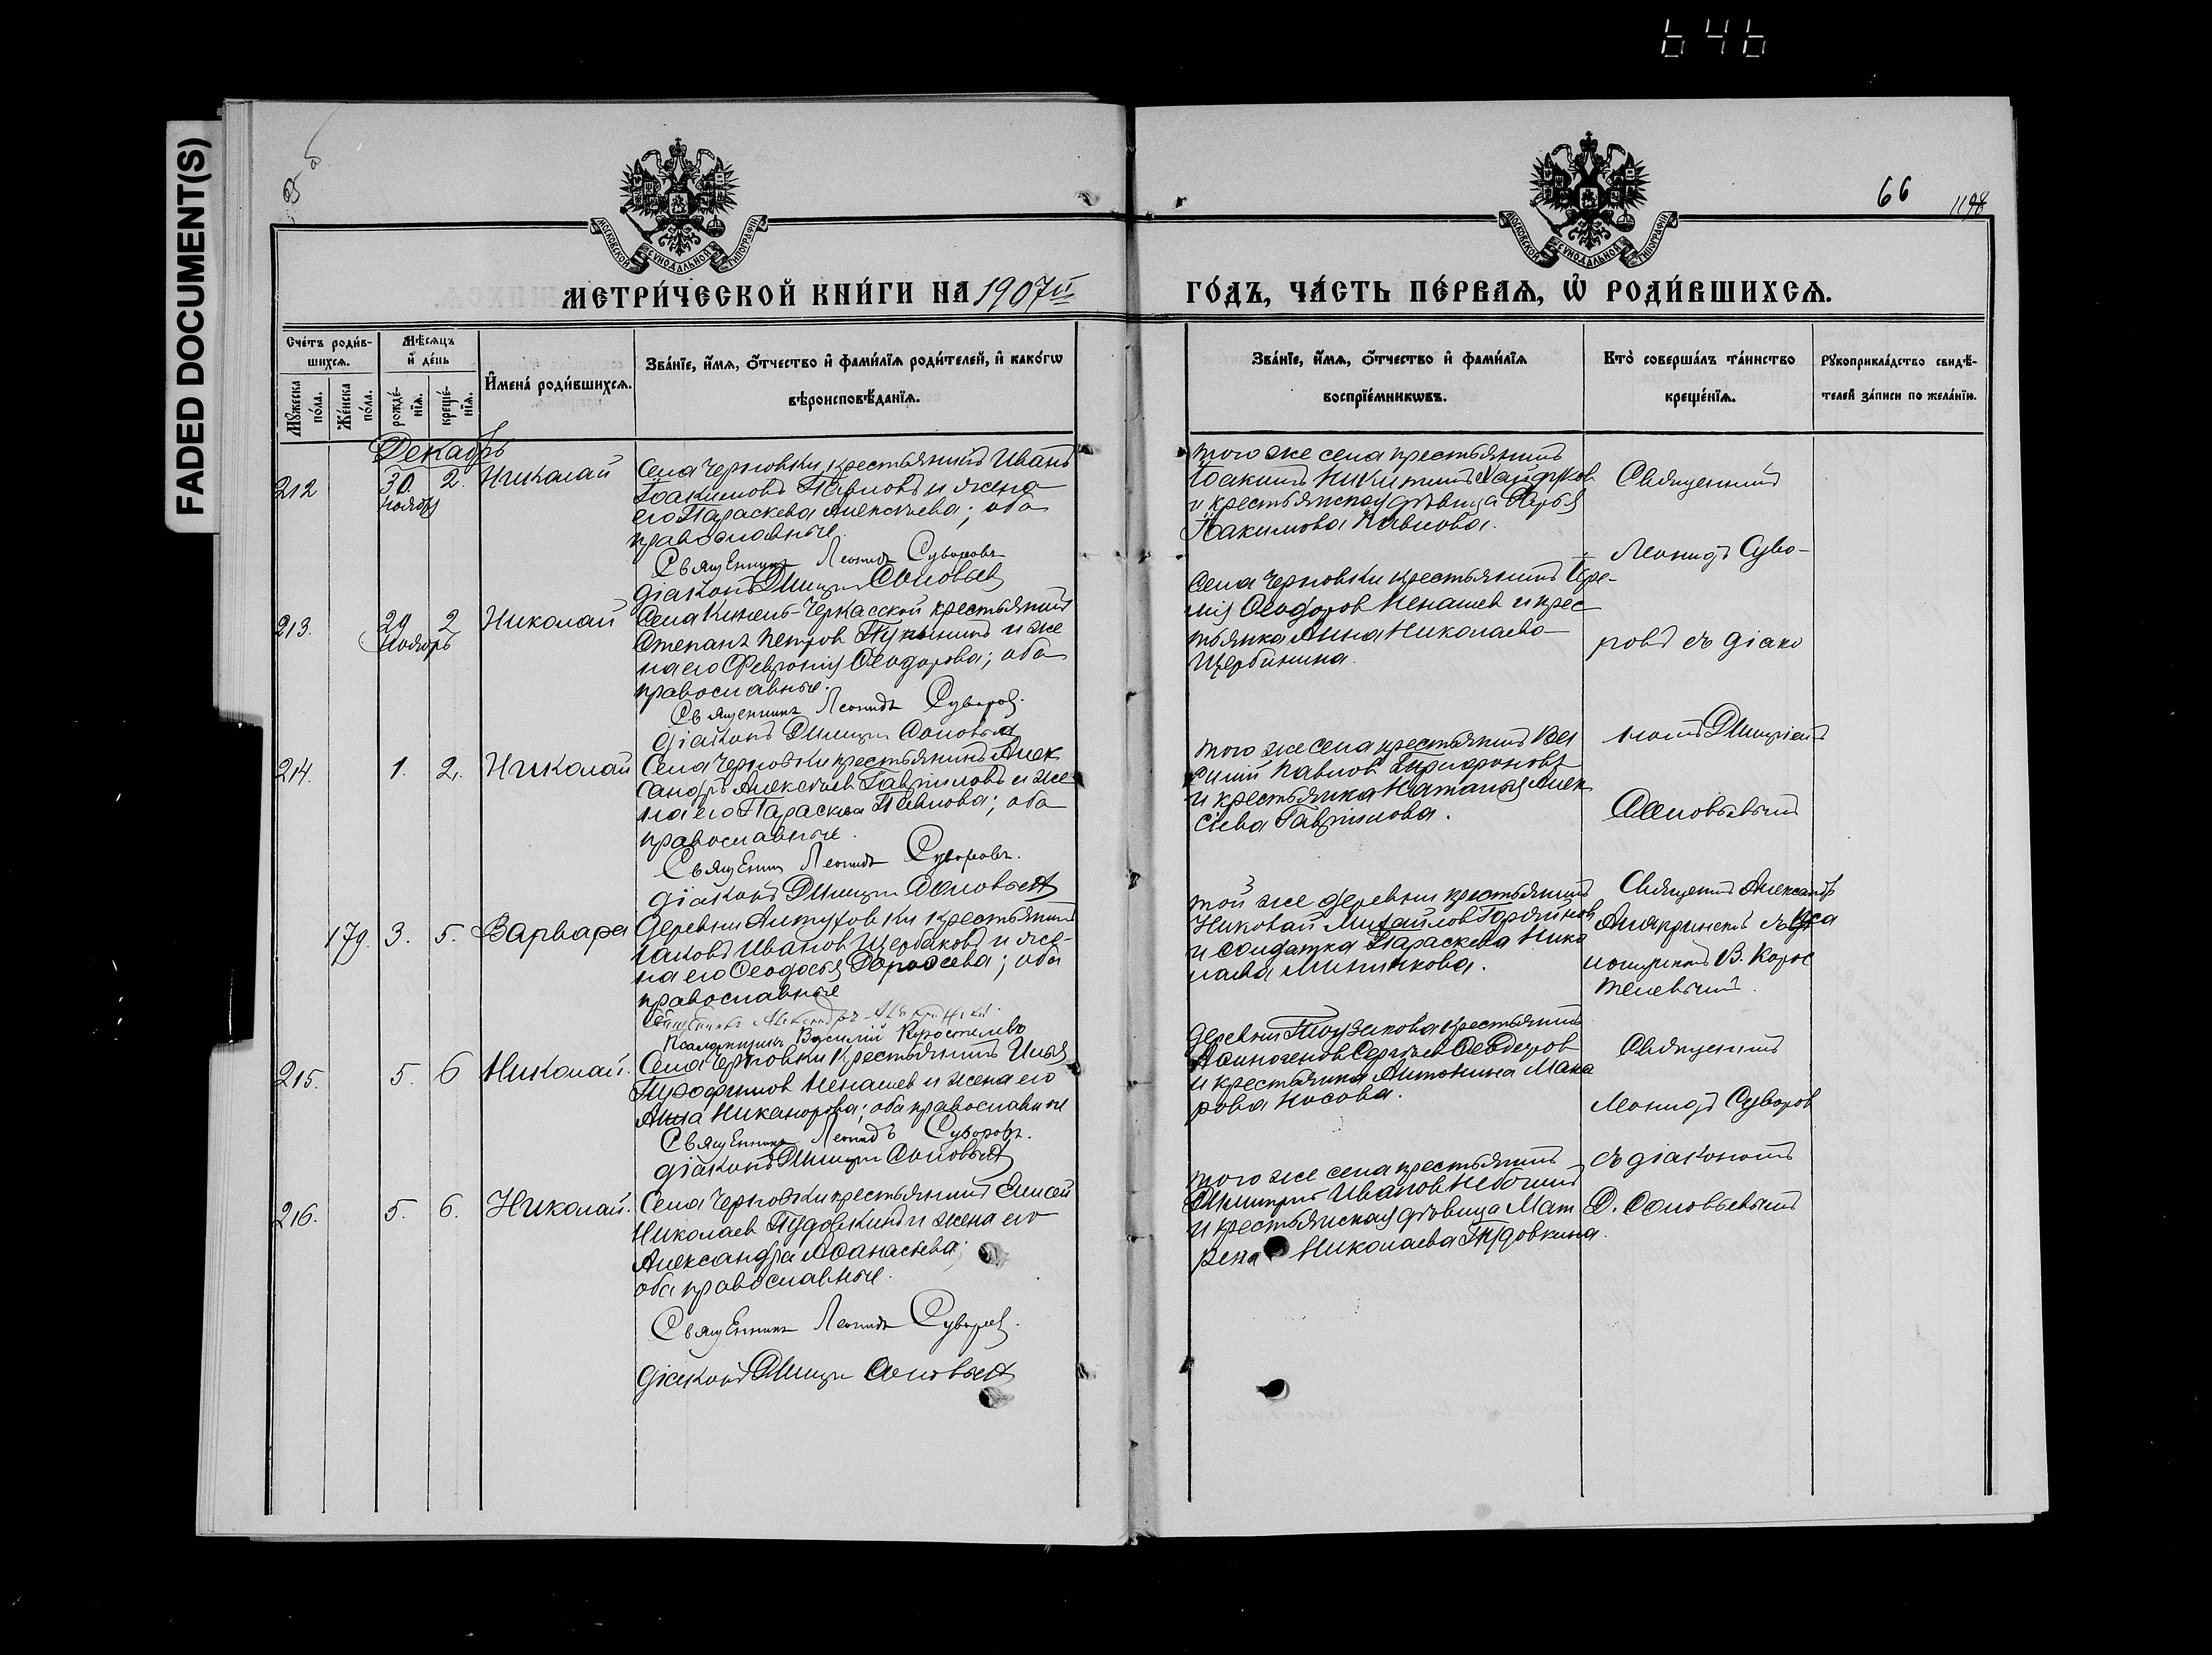 646
FADED DOCUMENT(S)
65 об
66
1198
МОСКОВСКОЙ СѴНОДАЛЬНОЙ ТИПОГРАФІИ
МОСКОВСКОЙ СѴНОДАЛЬНОЙ ТИПОГРАФІИ
МЕТРИ́ЧЕСКОЙ КНИ́ГИ НА 1907й
ГО́ДЪ, ЧА́СТЬ ПЕ́РВАѦ, Ѡ҆ РОДИ́ВШИХСѦ.
Сче́тъ роди́в-
шихсѧ.
Мꙋ́жеска по́ла.
Же́нска по́ла.
Мѣ́сѧцъ
и҆ де́нь
рожде́-
нїѧ.
креще́-
нїѧ.
И҆мена̀ роди́вшихсѧ.
Зва́нїе, и҆́мѧ, ѻ҆́тчество и҆ фами́лїѧ роди́телей, и҆ како́гѡ
вѣроисповѣ́данїѧ.
Зва́нїе, и҆́мѧ, ѻ҆́тчество и҆ фами́лїѧ
воспрїе́мникѡвъ.
Кто̀ соверша́лъ та́инство
креще́нїѧ.
Рꙋкоприкла́дство свидѣ́-
телей за́писи по жела́нїю.
Декабрь
212
30. ноября
2.
Николай
Села Черновки крестьянинъ Иванъ
Іоакимовъ Павловъ и жена
его Параскева Алексѣева; оба
православные.
Священникъ Леонидъ Суворовъ
діаконъ Дмитрій Соловьевъ
того же села крестьянинъ
Іоакимъ Никитинъ
и крестьянская дѣвица Дарья
Іоакимова Павлова.
Священникъ
Леонидъ Суво-
213.
29 ноября
2
Николай
Села Кинель-Черкасской крестьянинъ
Степанъ Петров и же
на его Феврония Ѳеодорова; оба
православные.
Священникъ Леонидъ Суворовъ.
діаконъ Дмитрій Соловьевъ
Села Черновки крестьянинъ Ере-
мія Ѳеодоров Ненашев и крес
тьянка Анна Николаева
Щербинина.
ровъ съ діако
214.
1.
2.
Николай
Села Черновки крестьянинъ Алек
сандръ Алексѣев Гавриловъ и же
на его Параскева Павлова; оба
православные.
Священникъ Леонидъ Суворовъ.
діаконъ Дмитрій Соловьевъ
того же села крестьянинъ
Павлов
и крестьянка Наталья Алек
сѣева Гаврилова.
номъ Дмитріемъ
Соловьевымъ
179.
3.
5.
Варвара
Деревни Антуховки крестьянинъ
Іаковъ Иванов Щербаковъ и же-
на его Ѳеодосья Дороѳеева; оба
православные
Псаломщикъ Василій Коростелевъ
той же деревни крестьянинъ
Николай Михайлов
и солдатка Параскева Нико
лаева
Священникъ Александръ
съ пса
ломщикомъ В. Корос
телевымъ.
215.
5.
6
Николай.
Села Черновки крестьянинъ Илья
Трофимов Ненашев и жена его
Анна Никанорова; оба православные
Священникъ Леонидъ Суворовъ.
діаконъ Дмитрій Соловьевъ
деревни крестьянинъ
Сергѣев
и крестьянка Антонина Мака
рова Носова.
Священникъ
Леонидъ Суворов
216.
5.
6.
Николай.
Села Черновки крестьянинъ Елисей
Николаев Пудовкинъ и жена его
Александра Аѳанасьева;
оба православные.
Священникъ Леонидъ Суворовъ.
діаконъ Дмитрій Соловьевъ
того же села крестьянинъ
Дмитрій Иванов
и крестьянская дѣвица Мат
рена Николаева Пудовкина.
съ діакономъ
Д. Соловьевымъ